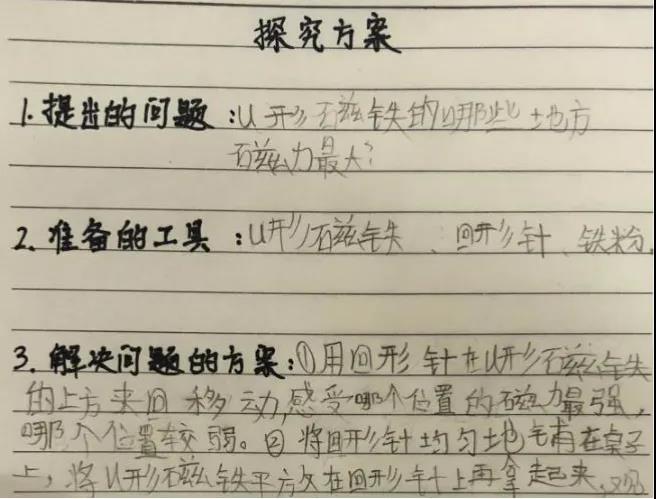 探究方案
1.提出的问题:U形磁铁的哪些地方
磁力最大?
2.准备的工具:U形磁铁、回形针、铁粉.
3.解决问题的方案:①用回形针在U形磁铁
的上方来回移动,感受哪个位置的磁力最强,
哪个位置较弱。②将回形针均匀地铺在桌子
上,将U形磁铁平放在回形针上再拿起来,观